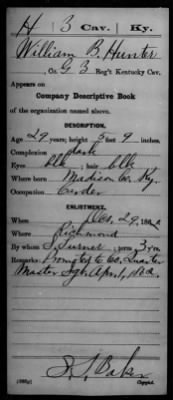 H | 3 Cav. | Ky.
William B. Hunter
, Co. G 3 Reg't Kentucky Cav.
Appears on
Company Descriptive Book
of the organization named above.
DESCRIPTION.
Age 29 years; height 5 feet 9 inches.
Complexion dark
Eyes blk ; hair blk
Where born Madison Co. Ky.
Occupation
ENLISTMENT.
When Dec. 29, 186
Where Richmond
By whom S. Turner ; term 3 yrs.
Remarks: Promoted to Co. Quarter
Master Sgt. April,
Baker
Copyist.